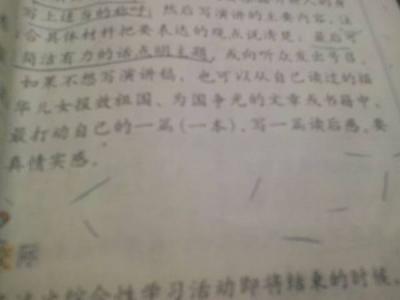 写上适当的称呼，然后写演讲的主要内容，注
合具体材料把要表达的观点说清楚，最后可
简洁有力的话点明主题，或向听众发出号召。
如果不想写演讲稿，也可以从自己读过的描
华儿女报效祖国、为国争光的文章或书籍中，
最打动自己的一篇（一本），写一篇读后感，要
真情实感。
交际
综合性学习活动即将结束的时候，